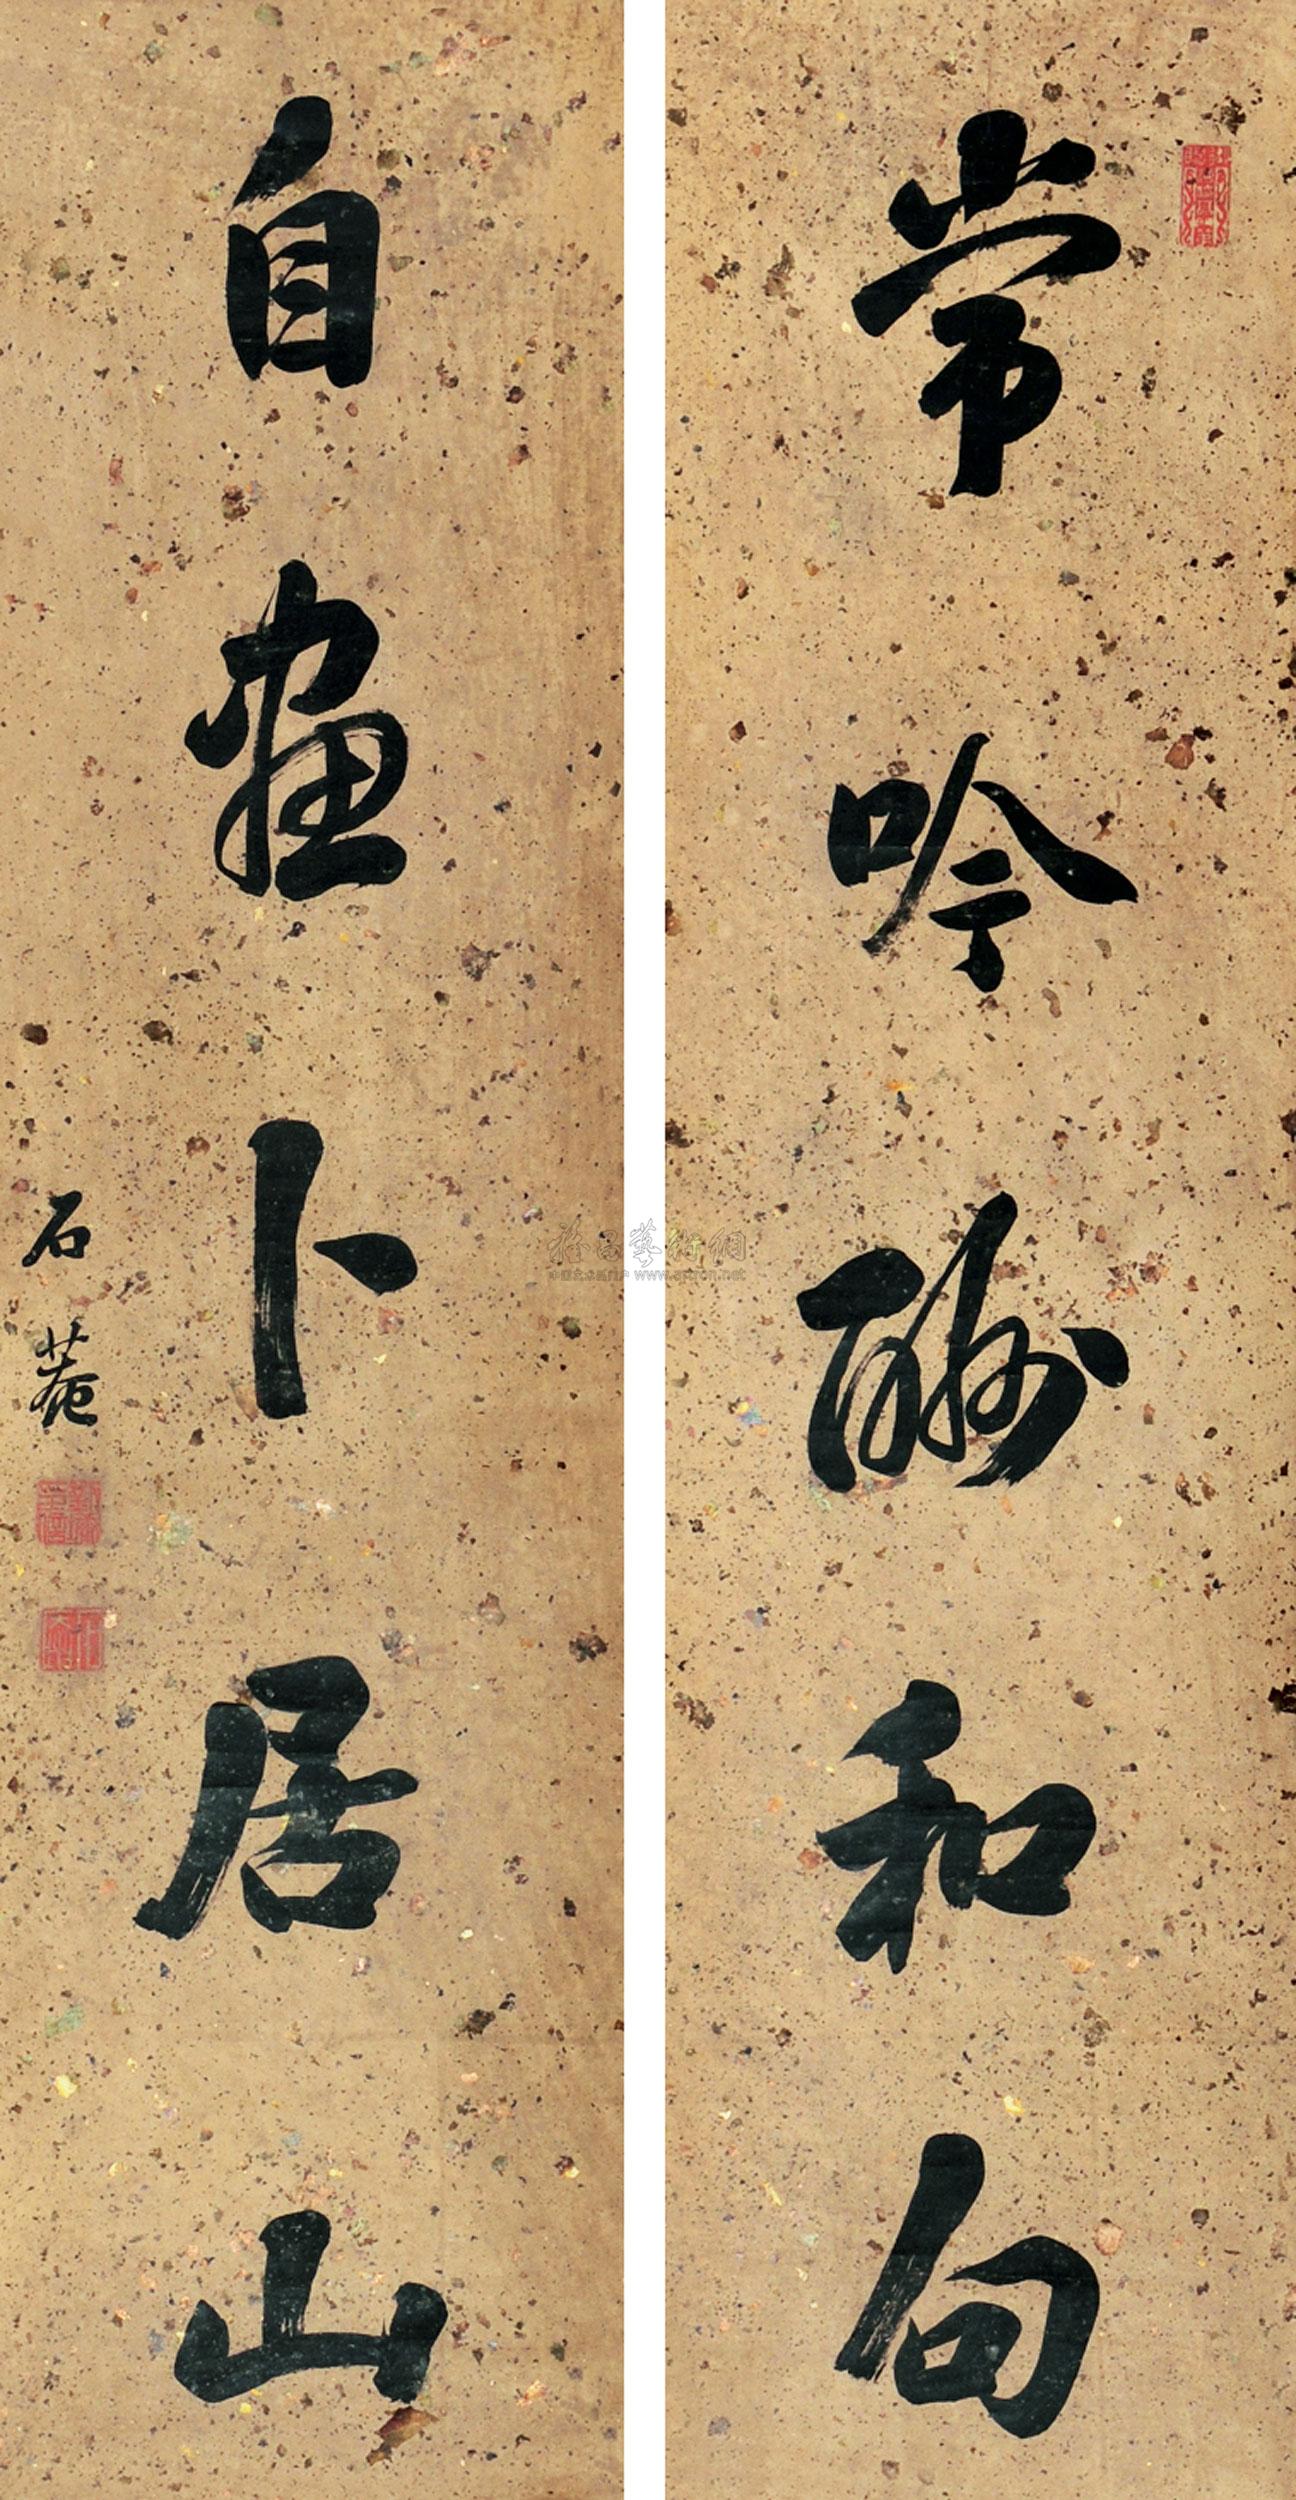 常吟酬和句
自画卜居山
石菴
雅昌藝術網
www.artron.net